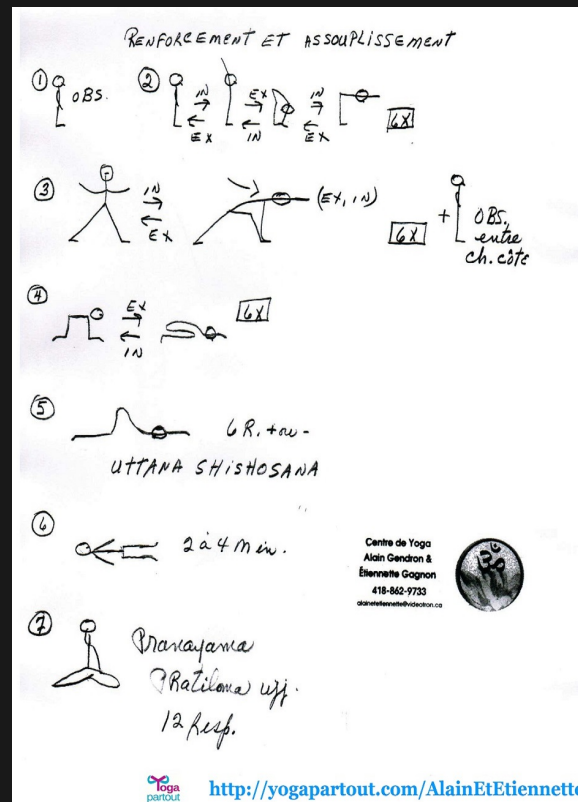 RENFORCEMENT ET ASSOUPLISSEMENT
① OBS. ② IN EX IN 6X
EX IN EX
③ IN (EX, IN) 6X + OBS.
EX entre
ch. côté
④ EX 6X
IN
⑤ 6 R. + ou -
UTTANA SHISHOSANA
⑥ 2 à 4 min.
Centre de Yoga
Alain Gendron &
Étiennette Gagnon
418-862-9733
alainetetiennette@videotron.ca
⑦ Pranayama
PRatiloma ujj.
12 Resp.
Yoga
partout
http://yogapartout.com/AlainEtEtiennette